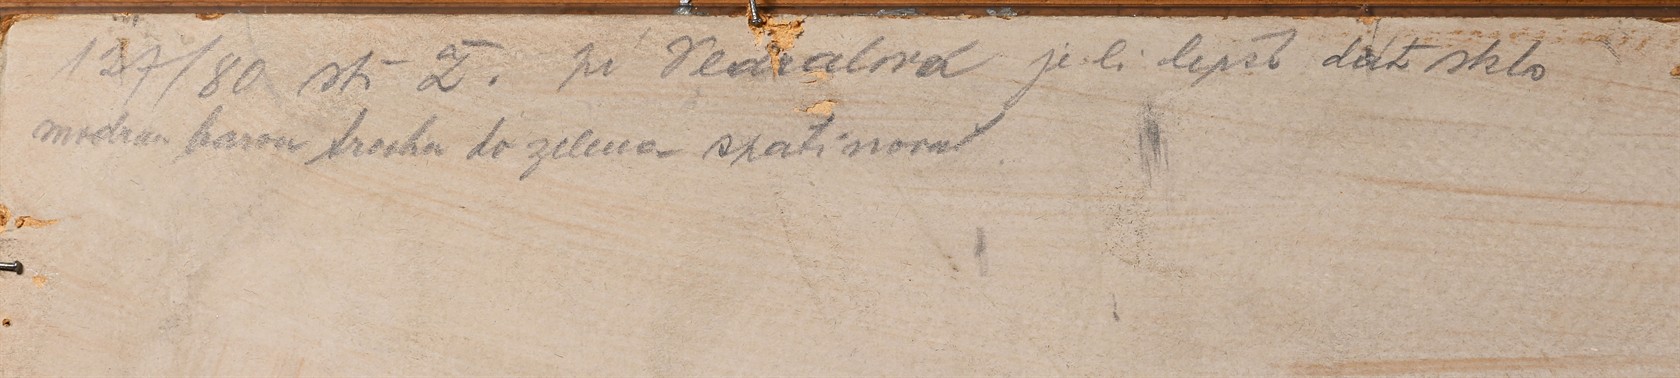 127/80 stř Z. pí Vedralová je-li lepší dát sklo
modrou barvou trochu do zelena spatinovat.